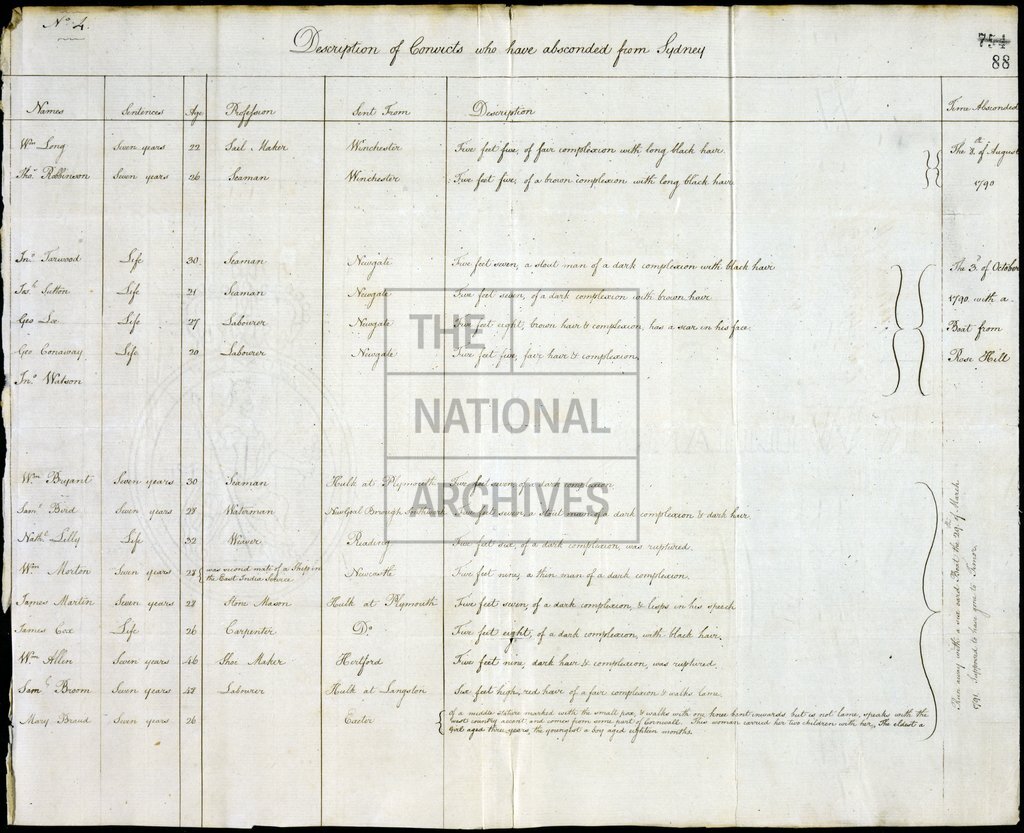 No. 4.
754
88
Description of Convicts who have absconded from Sydney
Names Sentences Age Profession Sent From Description Time Absconded
Wm Long Seven years 22 Sail Maker Winchester Five feet five, of fair complexion with long black hair
Thos. Robbinson Seven years 26 Seaman Winchester Five feet five, of a brown complexion with long black hair
The 8th of August
1790
Jno. Tarwood Life 30 Seaman Newgate Five feet seven, a stout man of a dark complexion with black hair
Josh. Sutton Life 21 Seaman Newgate Five feet seven, of a dark complexion with brown hair
Geo Lee Life 27 Labourer Newgate Five feet eight, brown hair & complexion, has a scar in his face
Geo Conaway Life 20 Labourer Newgate Five feet five, fair hair & complexion,
Jno. Watson
The 3d of October
1790 with a
Boat from
Rose Hill
THE
NATIONAL
ARCHIVES
Wm Bryant Seven years 30 Seaman Hulk at Plymouth Five feet seven of a dark complexion
Saml. Bird Seven years 28 Waterman New Goal Borough Southwark Five feet seven, a stout man of a dark complexion & dark hair
Nathl. Lilly Life 32 Weaver Reading Five feet six, of a dark complexion, was ruptured.
Wm Morton Seven years 28 was second mate of a Ship in
the East India Service Newcastle Five feet nine, a thin man of a dark complexion.
James Martin Seven years 28 Stone Mason Hulk at Plymouth Five feet seven, of a dark complexion, & lisps in his speech
James Cox Life 26 Carpenter Do. Five feet eight, of a dark complexion, with black hair.
Wm Allen Seven years 46 Shoe Maker Hertford Five feet nine, dark hair & complexion, was ruptured.
Saml. Broom Seven years 47 Labourer Hulk at Langston Six feet high, red hair of a fair complexion & walks lame.
Mary Braud Seven years 26 Exeter of a middle stature marked with the small pox, & walks with one knee bent inwards but is not lame, speaks with the
west country accent and comes from some part of Cornwall. This woman carried her two children with her, The eldest a
Girl aged three years, the youngest a boy aged eighteen months.
Run away with a six oard Boat the 29th of March
1791. Supposed to have gone to Timor.